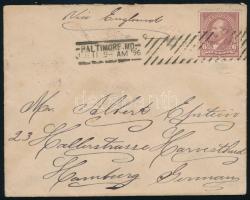 Via England
BALTIMORE, MD.
9 - AM '96
Mr. Albert Epstein
23 Hallerstrasse Harvesthud
Hamburg Germany